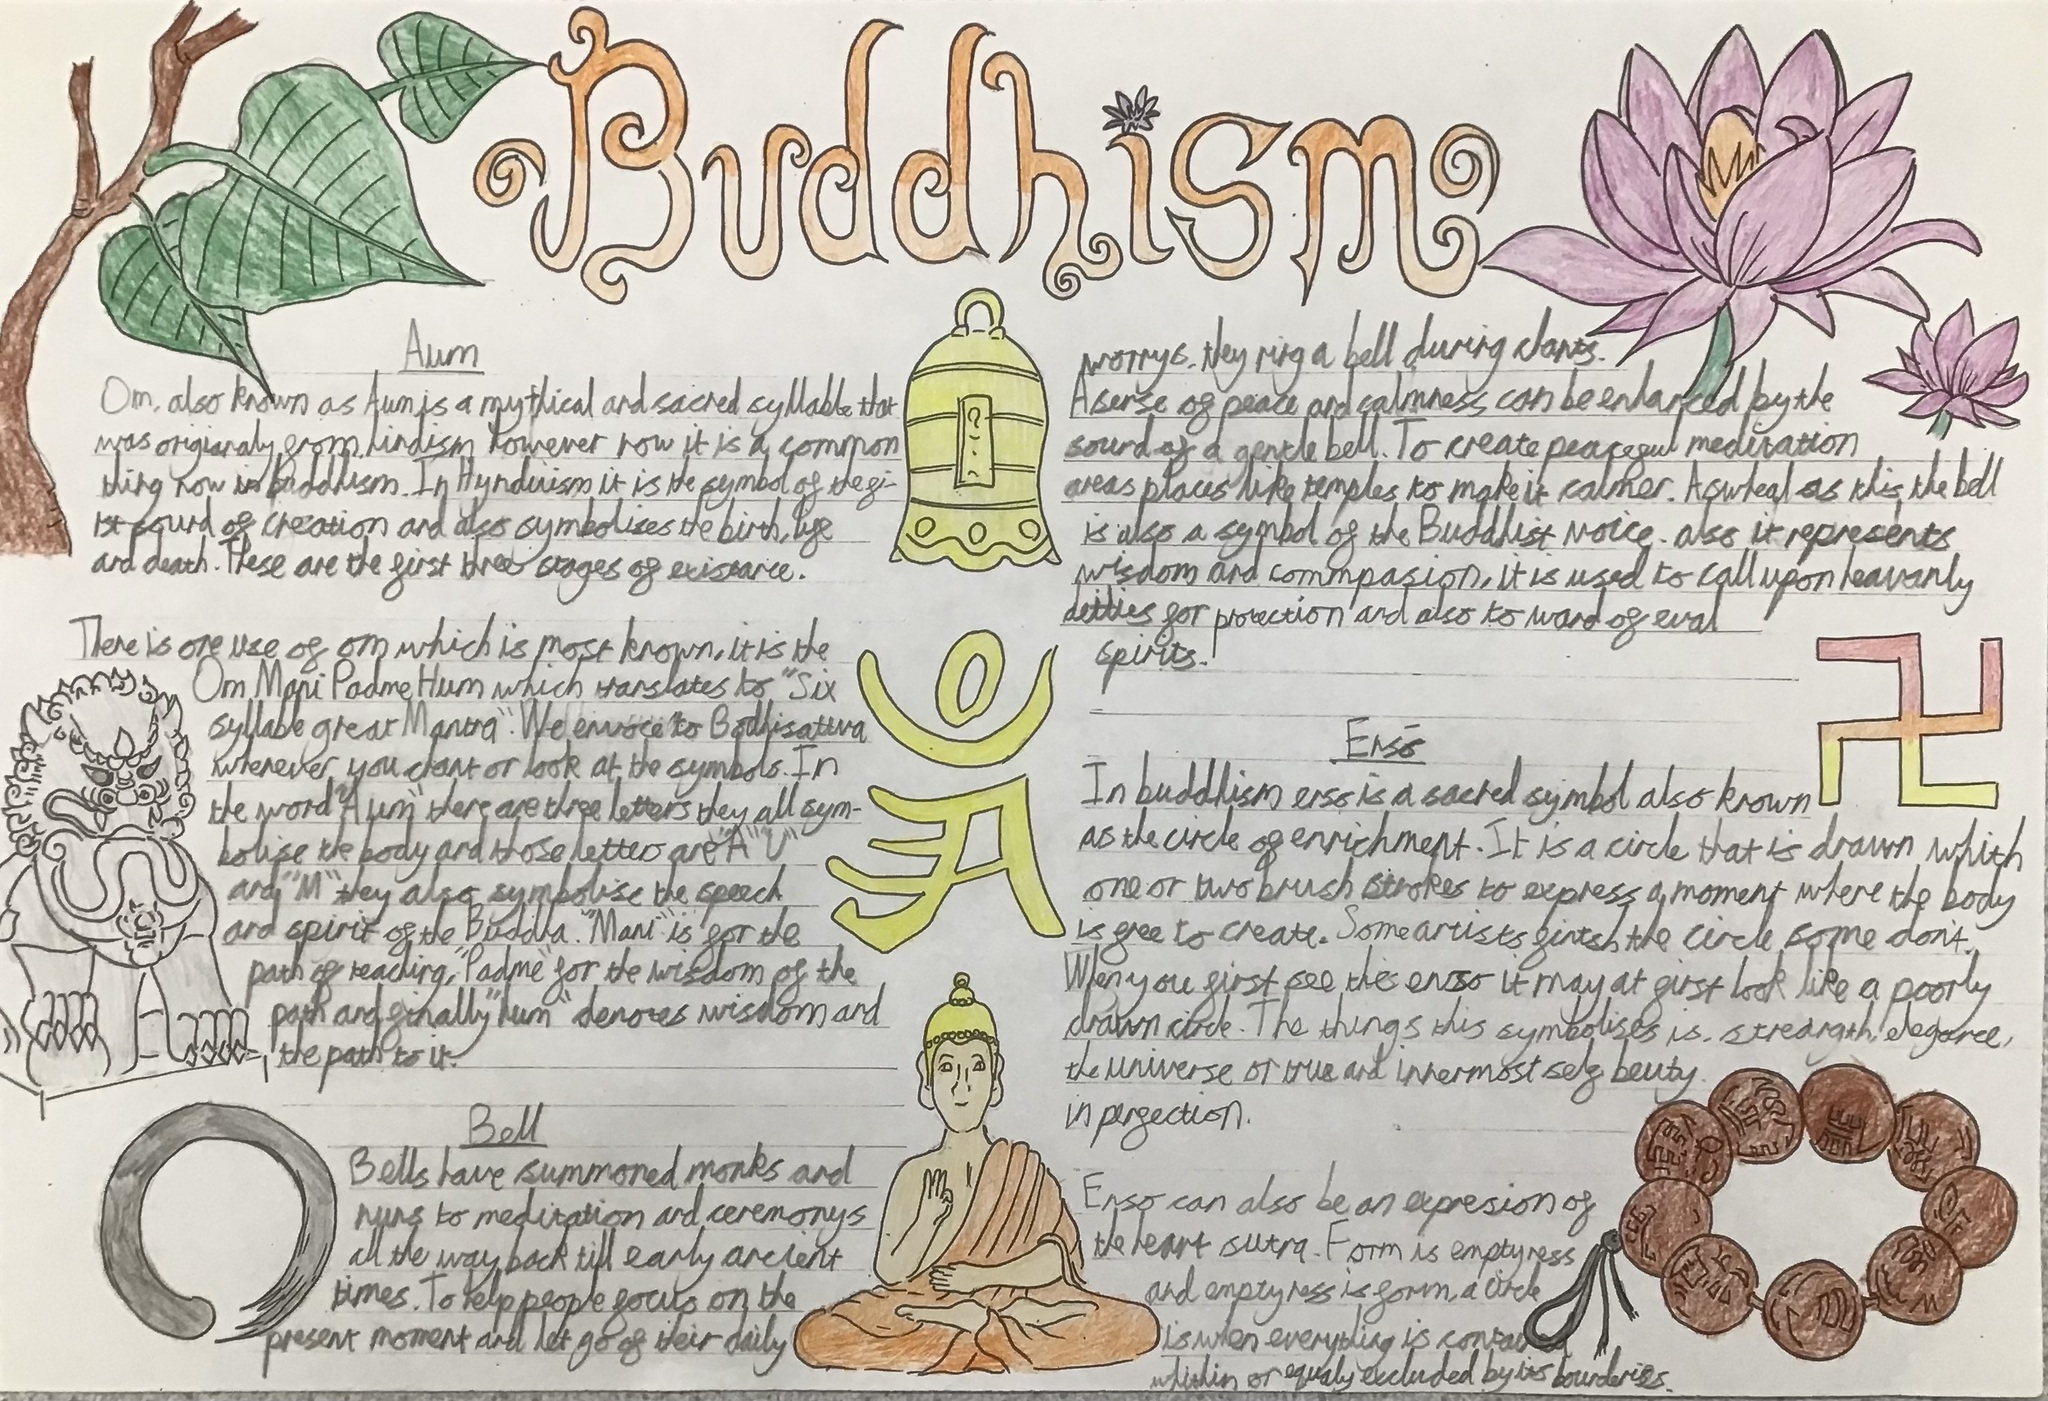 Buddhism
Aum
Om, also known as Aum, is a mythical and sacred syllable that
was originaly from hindism however now it is a common
thing now in Buddhism. In Hynduism it is the symbol of the fi-
rst sound of creation and also symbolises the birth, life
and death. These are the first three stages of existance.
There is one use of om which is most known, it is the
Om Mani Padme Hum which translates to "Six
syllable great Mantra". We envoce to Bodhisattva
whenever you chant or look at the symbols. In
the word "Aum" there are three letters they all sym-
bolise the body and those letters are "A" "U"
and "M" they also symbolise the speech
and spirit of the Buddha. "Mani" is for the
path of teaching, "Padme" for the wisdom of the
path and finally "hum" denotes wisdom and
the path to it.
Bell
Bells have summoned monks and
nuns to meditation and ceremonys
all the way back till early ancient
times. To help people focus on the
present moment and let go of their daily
worrys. they ring a bell during chants.
A sense of peace and calmness can be enhanced by the
sound of a gentle bell. To create peaceful meditation
areas places like temples to make it calmer. Aswheal as this the bell
is also a symbol of the Buddhist voice. also it represents
wisdom and commpasion, it is used to call upon heavanly
deities for protection and also to ward of eval
spirits.
Ensō
In buddhism enso is a sacred symbol also known
as the circle of enrichment. It is a circle that is drawn which
one or two brush strokes to express a moment where the body
is free to create. Some artists finish the circle some dont.
When you first see this enso it may at first look like a poorly
drawn circle. The things this symbolises is. streangth, elegance,
the universe or true and innermost self beuty
in perfection.
Enso can also be an expresion of
the heart sutra. Form is emptyness
and emptyness is form, a circle
is when everything is
whithin or equaly excluded by its bounderies.